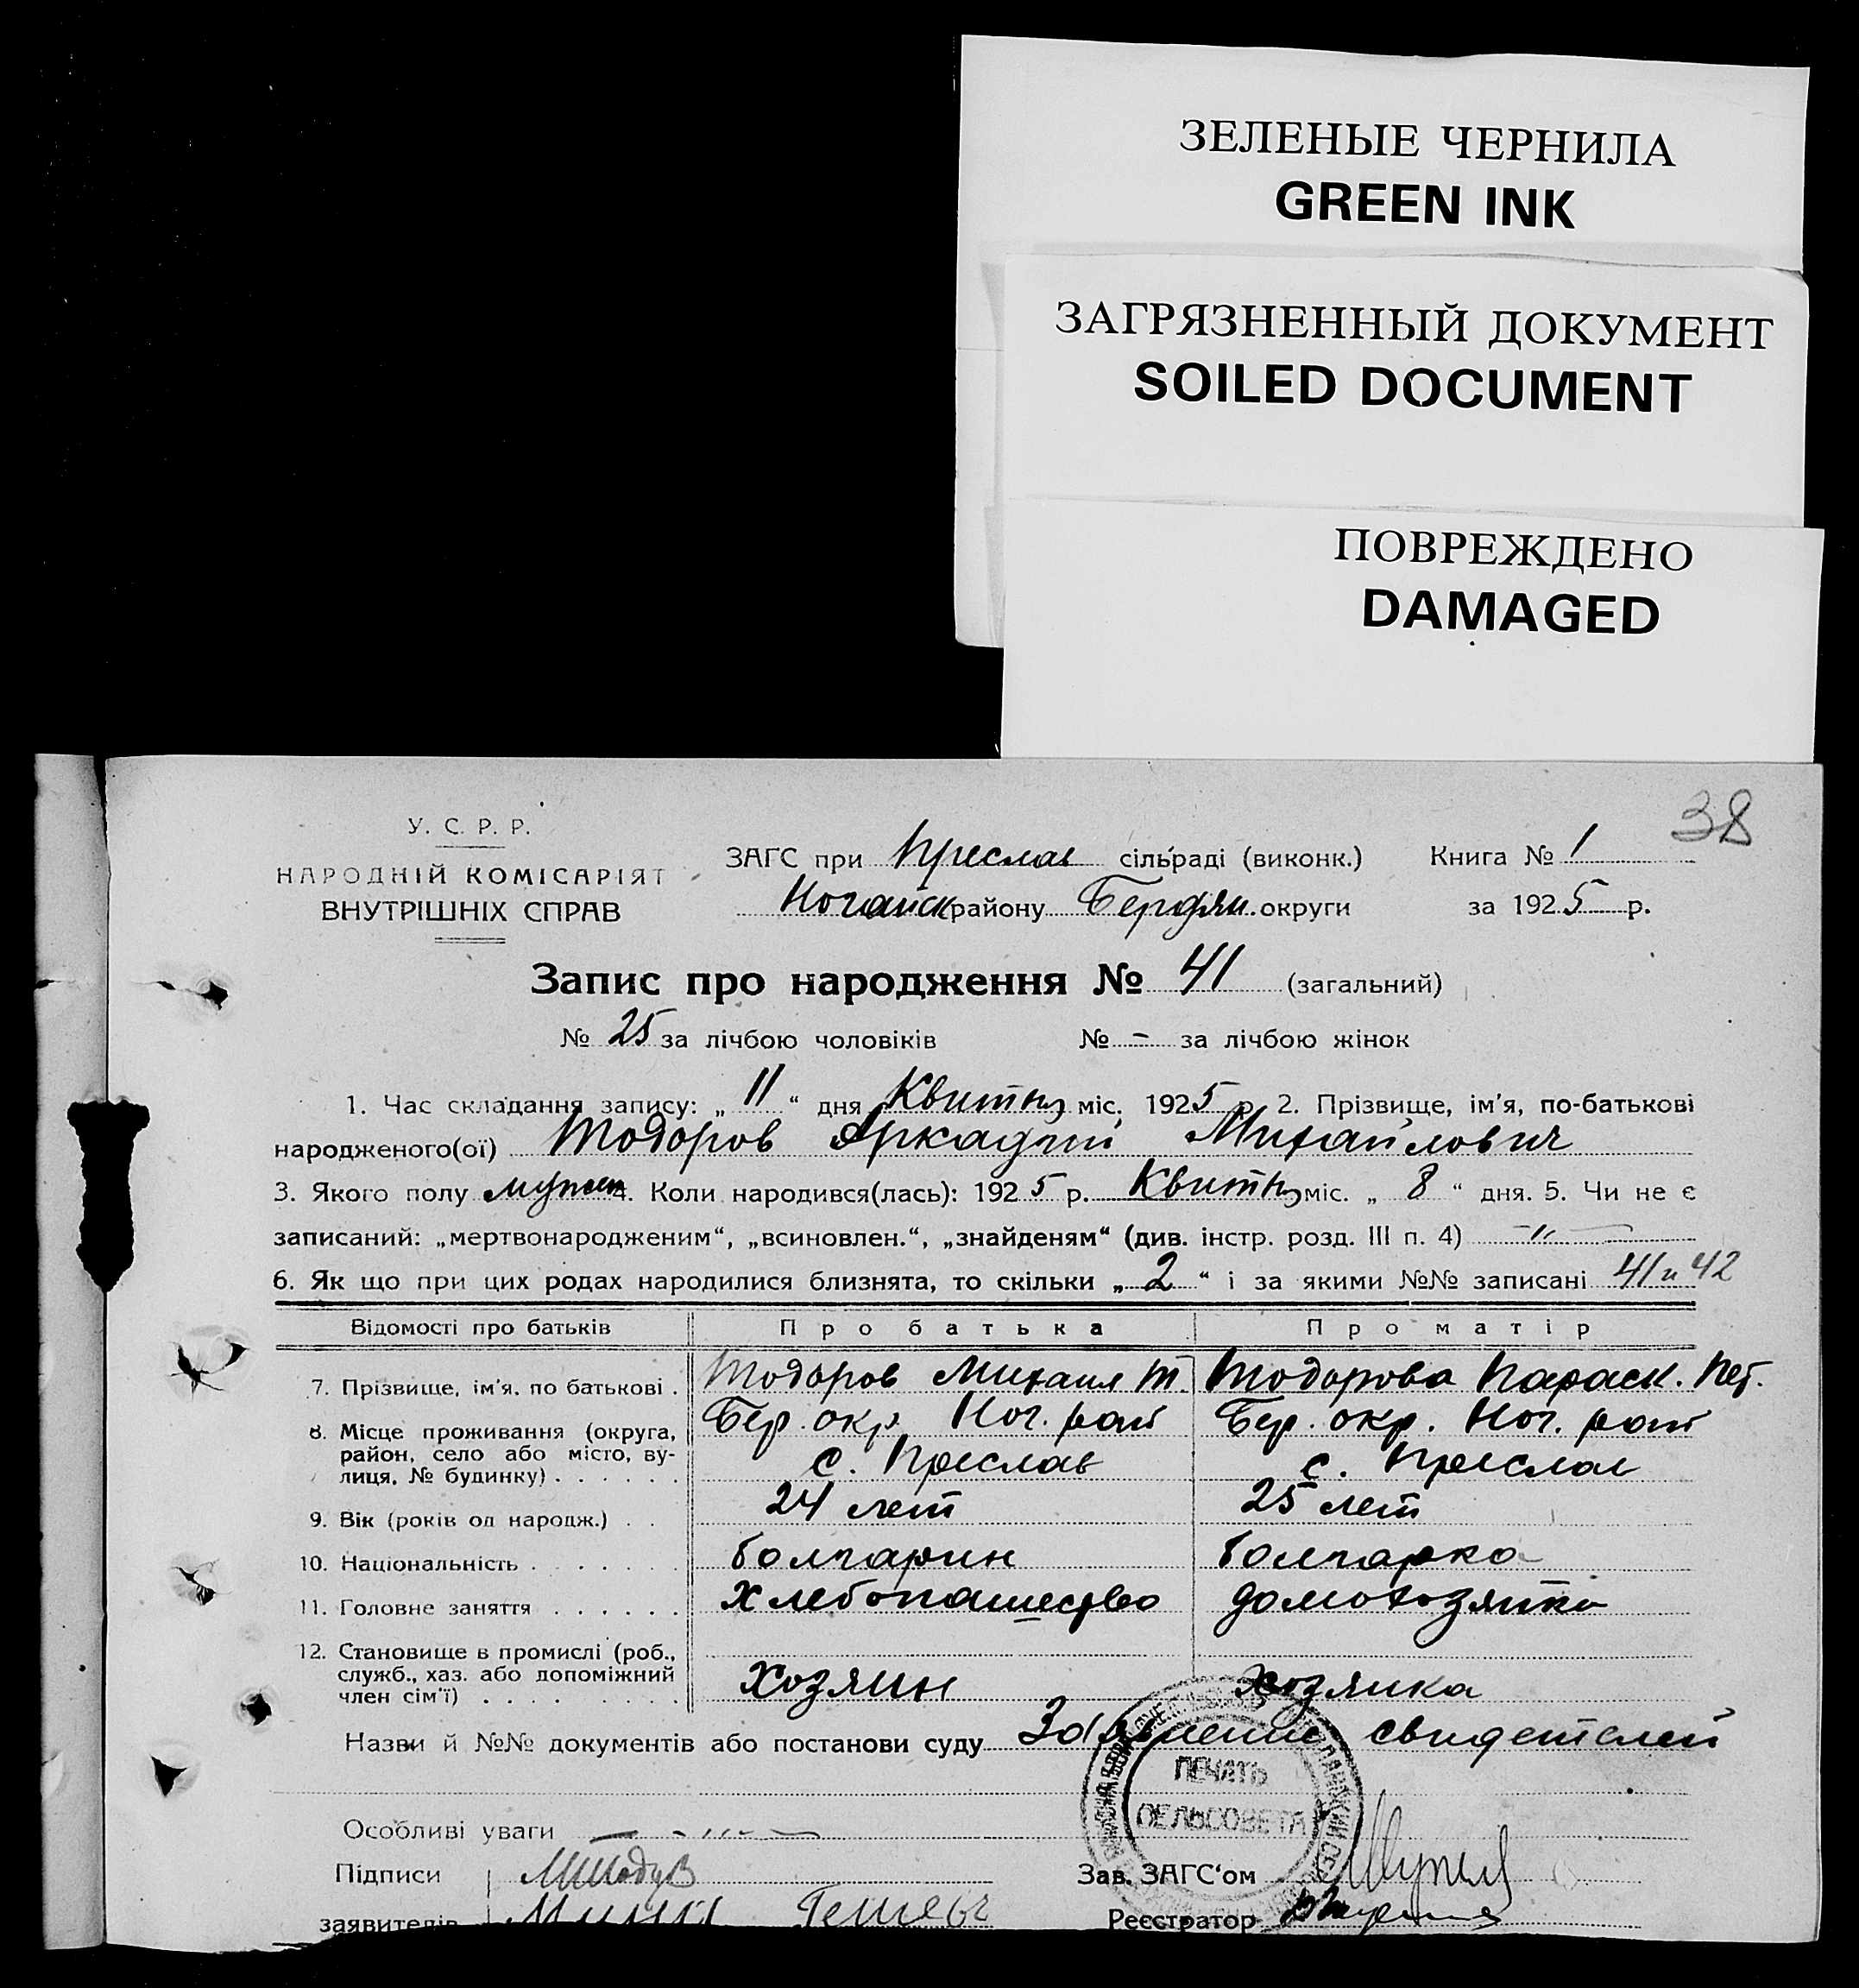 ЗЕЛЕНЫЕ ЧЕРНИЛА
GREEN INK
ЗАГРЯЗНЕННЫЙ ДОКУМЕНТ
SOILED DOCUMENT
ПОВРЕЖДЕНО
DAMAGED
38
У. С. Р. Р.
НАРОДНІЙ КОМІСАРІЯТ
ВНУТРІШНІХ СПРАВ
ЗАГС при Преслав сільраді (виконк.) Книга № 1
Ногайск району Бердян. округи за 1925 р.
Запис про народження № 41 (загальний)
№ 25 за лічбою чоловіків № – за лічбою жінок
1. Час складання запису: „11“ дня Квитня міс. 1925 р. 2. Прізвище, ім'я, по-батькові
народженого(ої) Тодоров Аркадий Михайлович
3. Якого полу мужск 4. Коли народився(лась): 1925 р. Квитня міс. „8“ дня. 5. Чи не є
записаний: „мертвонародженим“, „всиновлен.“, „знайденям“ (див. інстр. розд. III п. 4) –„–
6. Як що при цих родах народилися близнята, то скільки „2“ і за якими №№ записані 41 и 42
Відомості про батьків Про батька Про матір
7. Прізвище, ім'я, по батькові . Тодоров Михаил Т. Тодорова Параск. Пет.
8. Місце проживання (округа, Бер. окр. Ног. рай Бер. окр. Ног. рай
район, село або місто, ву-
лиця, № будинку) . . . . . . с. Преслав с. Преслав
9. Вік (років од народж.) . . 24 лет 25 лет
10. Національність . . . . . . . болгарин болгарка
11. Головне заняття . . . . . . Хлебопашество домохозяйка
12. Становище в промислі (роб.,
служб., хаз. або допоміжний
член сім'ї) . . . . . . . . . Хозяин Хозяика
Назви й №№ документів або постанови суду Заявление свидетелей
ПЕЧАТЬ
СЕЛЬСОВЕТА
Особливі уваги – – „ – –
Підписи Зав. ЗАГС'ом
заявителів Реєстратор